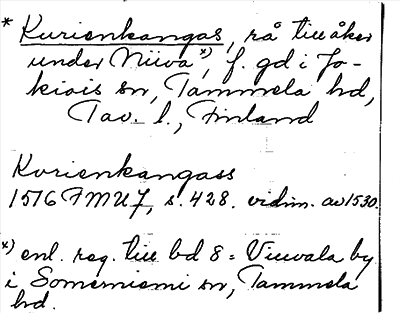 * Kurienkangas, rå till åker
under Niiva*), f. gd i Jo-
kiois sn, Tammela hd,
Tav. l., Finland
Korienkangass
1516 FMU 7, s. 428. vidim. av 1530.
*) enl. reg. till bd 8 = Viuvala by
i Somerniemi sn, Tammela
hd.